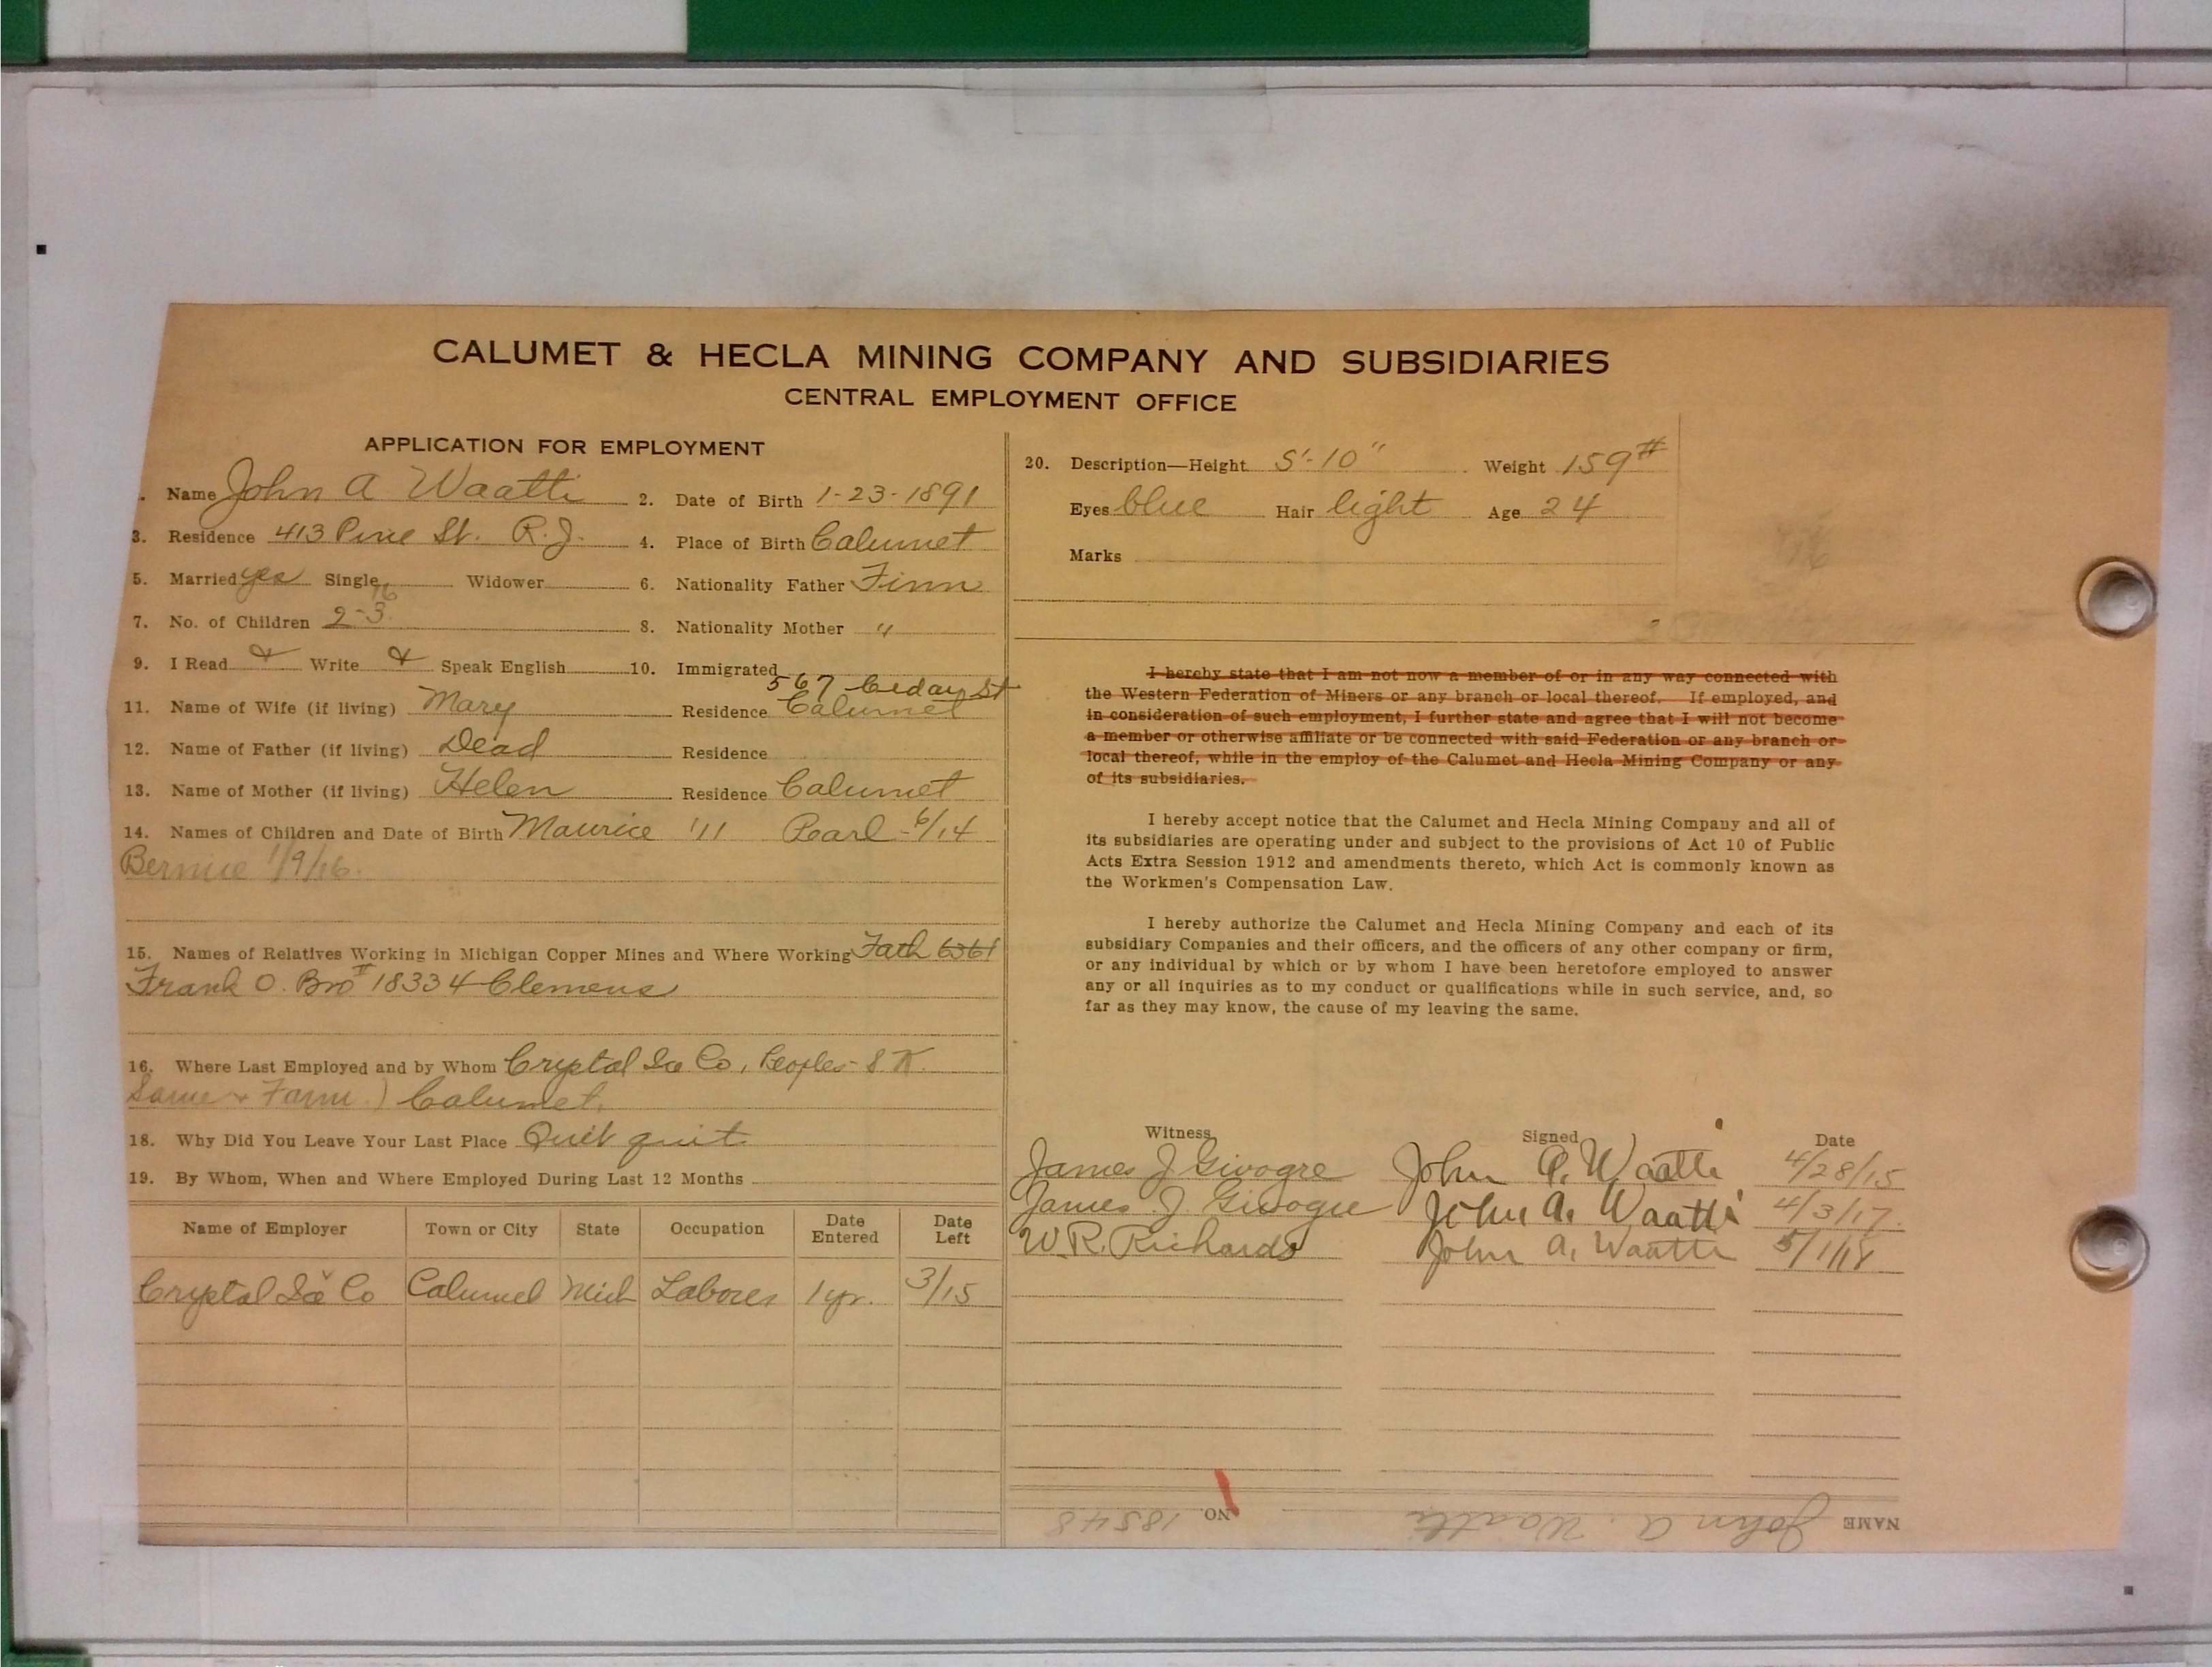 CALUMET & HECLA MINING COMPANY AND SUBSIDIARIES
CENTRAL EMPLOYMENT OFFICE
APPLICATION FOR EMPLOYMENT
. Name John A Waatti 2. Date of Birth 1-23-1891
3. Residence 413 Pine St. R.J. 4. Place of Birth Calumet
5. Married yes Single Widower 6. Nationality Father Finn
7. No. of Children 2-3 16 8. Nationality Mother "
9. I Read & Write & Speak English 10. Immigrated
567 Cedar St
11. Name of Wife (if living) Mary Residence Calumet
12. Name of Father (if living) Dead Residence
13. Name of Mother (if living) Helen Residence Calumet
14. Names of Children and Date of Birth Maurice '11 Pearl - 6/14
Bernice 1/9/16.
15. Names of Relatives Working in Michigan Copper Mines and Where Working Fath 6361
Frank O. Bro 18334 Clemens
16. Where Last Employed and by Whom Crystal Ice Co, Peoples
Same + Farm ) Calumet.
18. Why Did You Leave Your Last Place Quit quit
19. By Whom, When and Where Employed During Last 12 Months
Name of Employer Town or City State Occupation Date Entered Date Left
Crystal Ice Co Calumet Mich Laborer 1 yr. 3/15
20. Description—Height 5'-10" Weight 159#
Eyes blue Hair light Age 24
Marks
I hereby state that I am not now a member of or in any way connected with
the Western Federation of Miners or any branch or local thereof. If employed, and
in consideration of such employment, I further state and agree that I will not become
a member or otherwise affiliate or be connected with said Federation or any branch or
local thereof, while in the employ of the Calumet and Hecla Mining Company or any
of its subsidiaries.
I hereby accept notice that the Calumet and Hecla Mining Company and all of
its subsidiaries are operating under and subject to the provisions of Act 10 of Public
Acts Extra Session 1912 and amendments thereto, which Act is commonly known as
the Workmen's Compensation Law.
I hereby authorize the Calumet and Hecla Mining Company and each of its
subsidiary Companies and their officers, and the officers of any other company or firm,
or any individual by which or by whom I have been heretofore employed to answer
any or all inquiries as to my conduct or qualifications while in such service, and, so
far as they may know, the cause of my leaving the same.
Witness Signed Date
James J Givogre John A. Waatti 4/28/15
James J. Givogre John A. Waatti 4/3/17.
W. R. Richards John A. Waatti 5/1/18
NAME John A. Waatti NO. 18548